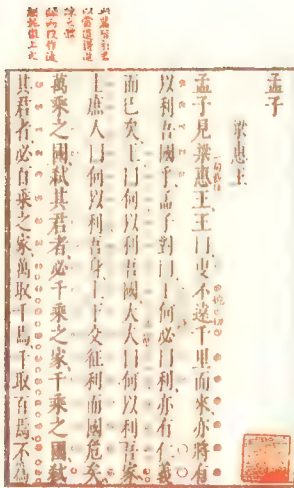 孟子
梁惠王
孟子見梁惠王王曰叟不遠千里而來亦將有
以利吾國乎孟子對曰王何必曰利亦有仁義
而已矣王曰何以利吾國大夫曰何以利吾家
士庶人曰何以利吾身上下交征利而國危矣
萬乘之國弑其君者必千乘之家千乘之國弑
其君者必百乘之家萬取千焉千取百焉不爲